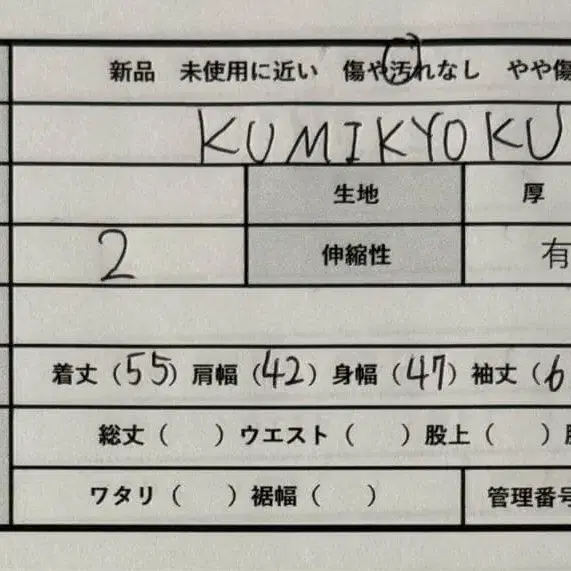 新品 未使用に近い 傷や汚れなし やや傷
KUMIKYOKU
生地 厚
2 伸縮性 有
着丈(55) 肩幅(42) 身幅(47) 袖丈(6
総丈( ) ウエスト( ) 股上( )
ワタリ( ) 裾幅( ) 管理番号